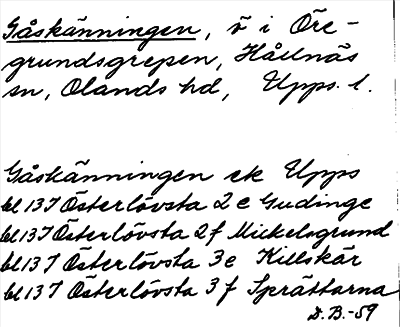 Gåskänningen, ö i Öre-
grundsgrepen, Hållnäs
sn, Olands hd, Upps. l.
Gåskänningen ek Upps
bl 137 Österlövsta 2 e Gudinge
bl 137 Österlövsta 2 f Mickelsgrund
bl 137 Österlövsta 3 e Killskär
bl 137 Österlövsta 3 f Sprättarna
D.B.-59